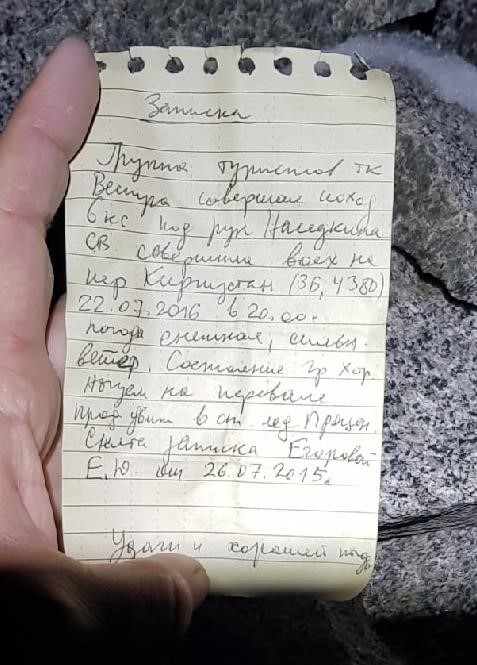 Записка
Группа туристов тк
Вестра совершая поход
6 кс под рук Наседкина
СВ совершила восх на
пер Киргизстан (3Б, 4380)
22.07.2016 в 20.00.
погода снежная, сильн.
ветер. Состояние гр хор.
ночуем на перевале
прод движ в ст. лед
Снята записка Егоровой
Е.Ю. от 26.07.2015.
Удачи и хорошей